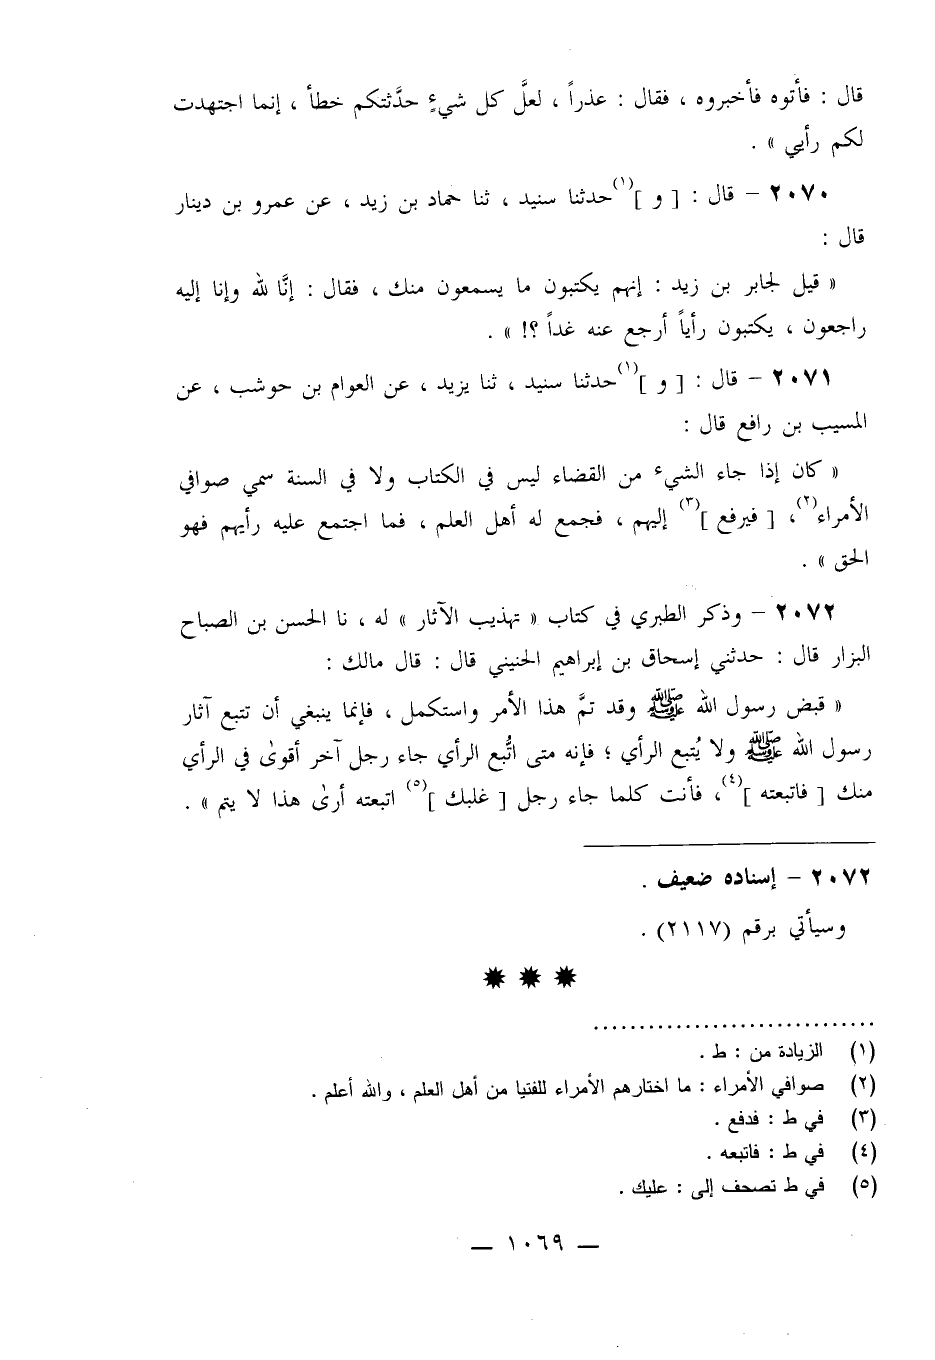 قال : فأتوه فأخبروه ، فقال : عذراً ، لعلَّ كل شيءٍ حدَّثتكم خطأ ، إنما اجتهدت
لكم رأيي » .
٢٠٧٠ – قال : [ و ](١) حدثنا سنيد ، ثنا حماد بن زيد ، عن عمرو بن دينار
قال :
« قيل لجابر بن زيد : إنهم يكتبون ما يسمعون منك ، فقال : إنَّا لله وإنا إليه
راجعون ، يكتبون رأياً أرجع عنه غداً ؟! » .
٢٠٧١ – قال : [ و ](١) حدثنا سنيد ، ثنا يزيد ، عن العوام بن حوشب ، عن
المسيب بن رافع قال :
« كان إذا جاء الشيء من القضاء ليس في الكتاب ولا في السنة سمي صوافي
الأمراء(٢)، [ فيرفع ](٣) إليهم ، فجمع له أهل العلم ، فما اجتمع عليه رأيهم فهو
الحق » .
٢٠٧٢ – وذكر الطبري في كتاب « تهذيب الآثار » له ، نا الحسن بن الصباح
البزار قال : حدثني إسحاق بن إبراهيم الحنيني قال : قال مالك :
« قبض رسول الله ﷺ وقد تمَّ هذا الأمر واستكمل ، فإنما ينبغي أن تتبع آثار
رسول الله ﷺ ولا يُتبع الرأي ؛ فإنه متى اتُّبع الرأي جاء رجل آخر أقوىٰ في الرأي
منك [ فاتبعته ](٤)، فأنت كلما جاء رجل [ غلبك ](٥) اتبعته أرىٰ هذا لا يتم » .
٢٠٧٢ – إسناده ضعيف .
وسيأتي برقم (٢١١٧) .
✸ ✸ ✸
..............................
(١) الزيادة من : ط .
(٢) صوافي الأمراء : ما اختارهم الأمراء للفتيا من أهل العلم ، والله أعلم .
(٣) في ط : فدفع .
(٤) في ط : فاتبعه .
(٥) في ط تصحف إلى : عليك .
— ١٠٦٩ —